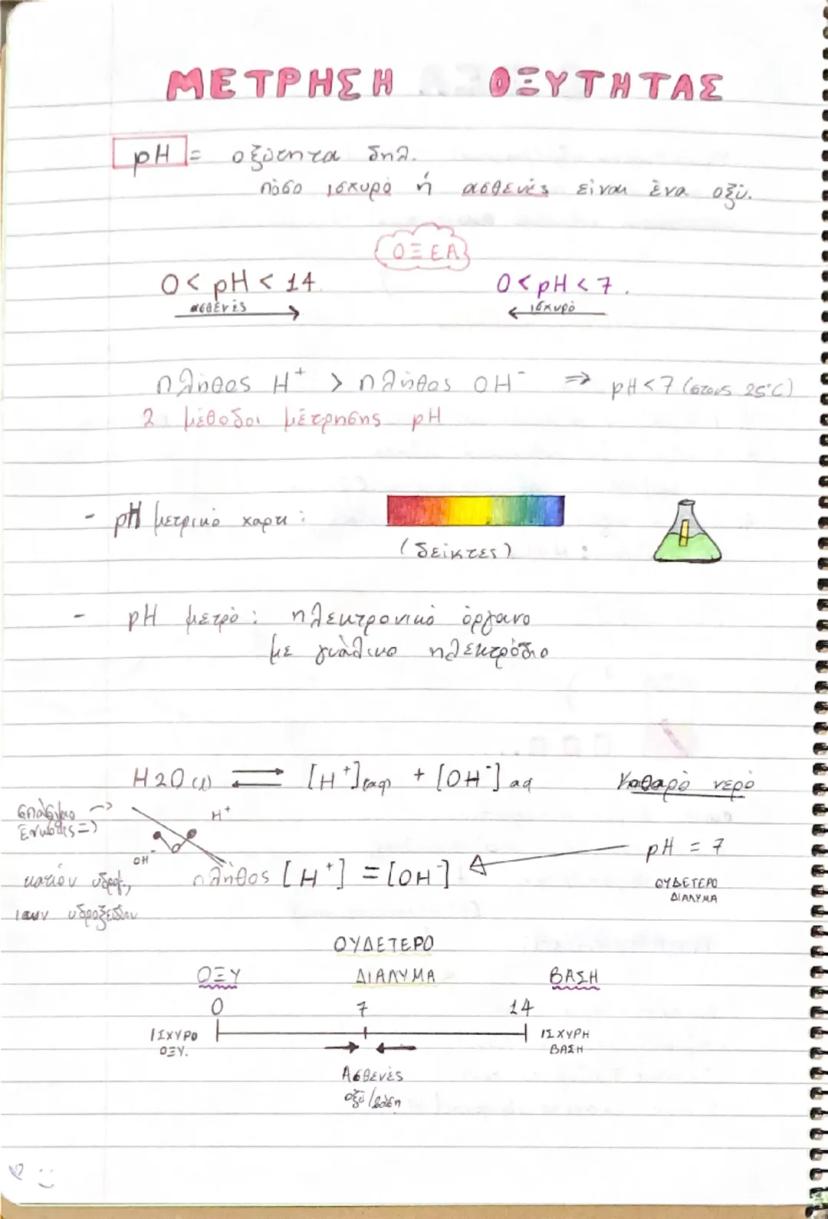 ΜΕΤΡΗΣΗ ΟΞΥΤΗΤΑΣ
pH = οξύτητα δηλ.
πόσο ισχυρό ή ασθενές είναι ένα οξύ.
ΟΞΕΑ
0 < pH < 14 0 < pH < 7.
ασθενές ισχυρό
πλήθος H⁺ > πλήθος OH⁻ ⇒ pH < 7 (στους 25°C)
2 μέθοδοι μέτρησης pH
- pH μετρικό χαρτι:
(δείκτες) :
- pH μετρό: ηλεκτρονικό όργανο
με γυάλινο ηλεκτρόδιο
H2O (l) ⇌ [H⁺] (aq) + [OH⁻] aq Καθαρό νερό
σπάσιμο ->
ένωσης =>
H⁺
OH⁻
πλήθος [H⁺] = [OH⁻] pH = 7
ΟΥΔΕΤΕΡΟ
ΔΙΑΛΥΜΑ
κατιόν υδρογ,
υδροξειδίου
ΟΥΔΕΤΕΡΟ
ΟΞΥ ΔΙΑΛΥΜΑ ΒΑΣΗ
0 7 14
ΙΣΧΥΡΟ ΟΞΥ. ΙΣΧΥΡΗ ΒΑΣΗ
Ασθενές
οξύ/βάση